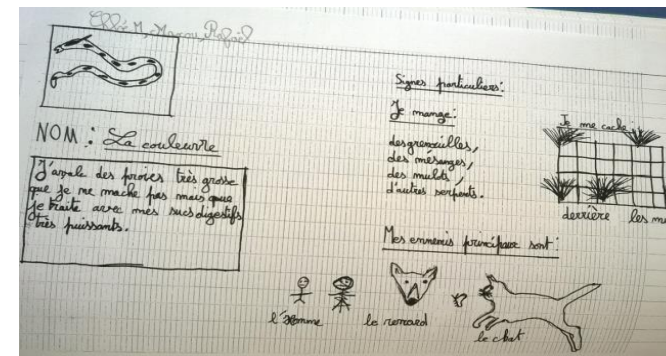 M, Manou, Rafaël
NOM : La couleuvre
J'avale des proies très grosse
que je ne mache pas mais que
je traite avec mes sucs digestifs
très puissants.
Signes particuliers :
Je mange :
des grenouilles,
des mésanges,
des mulots,
d'autres serpents.
Je me cache :
derrière les mu
Mes ennemis principaux sont :
l'Homme
le renard
le chat